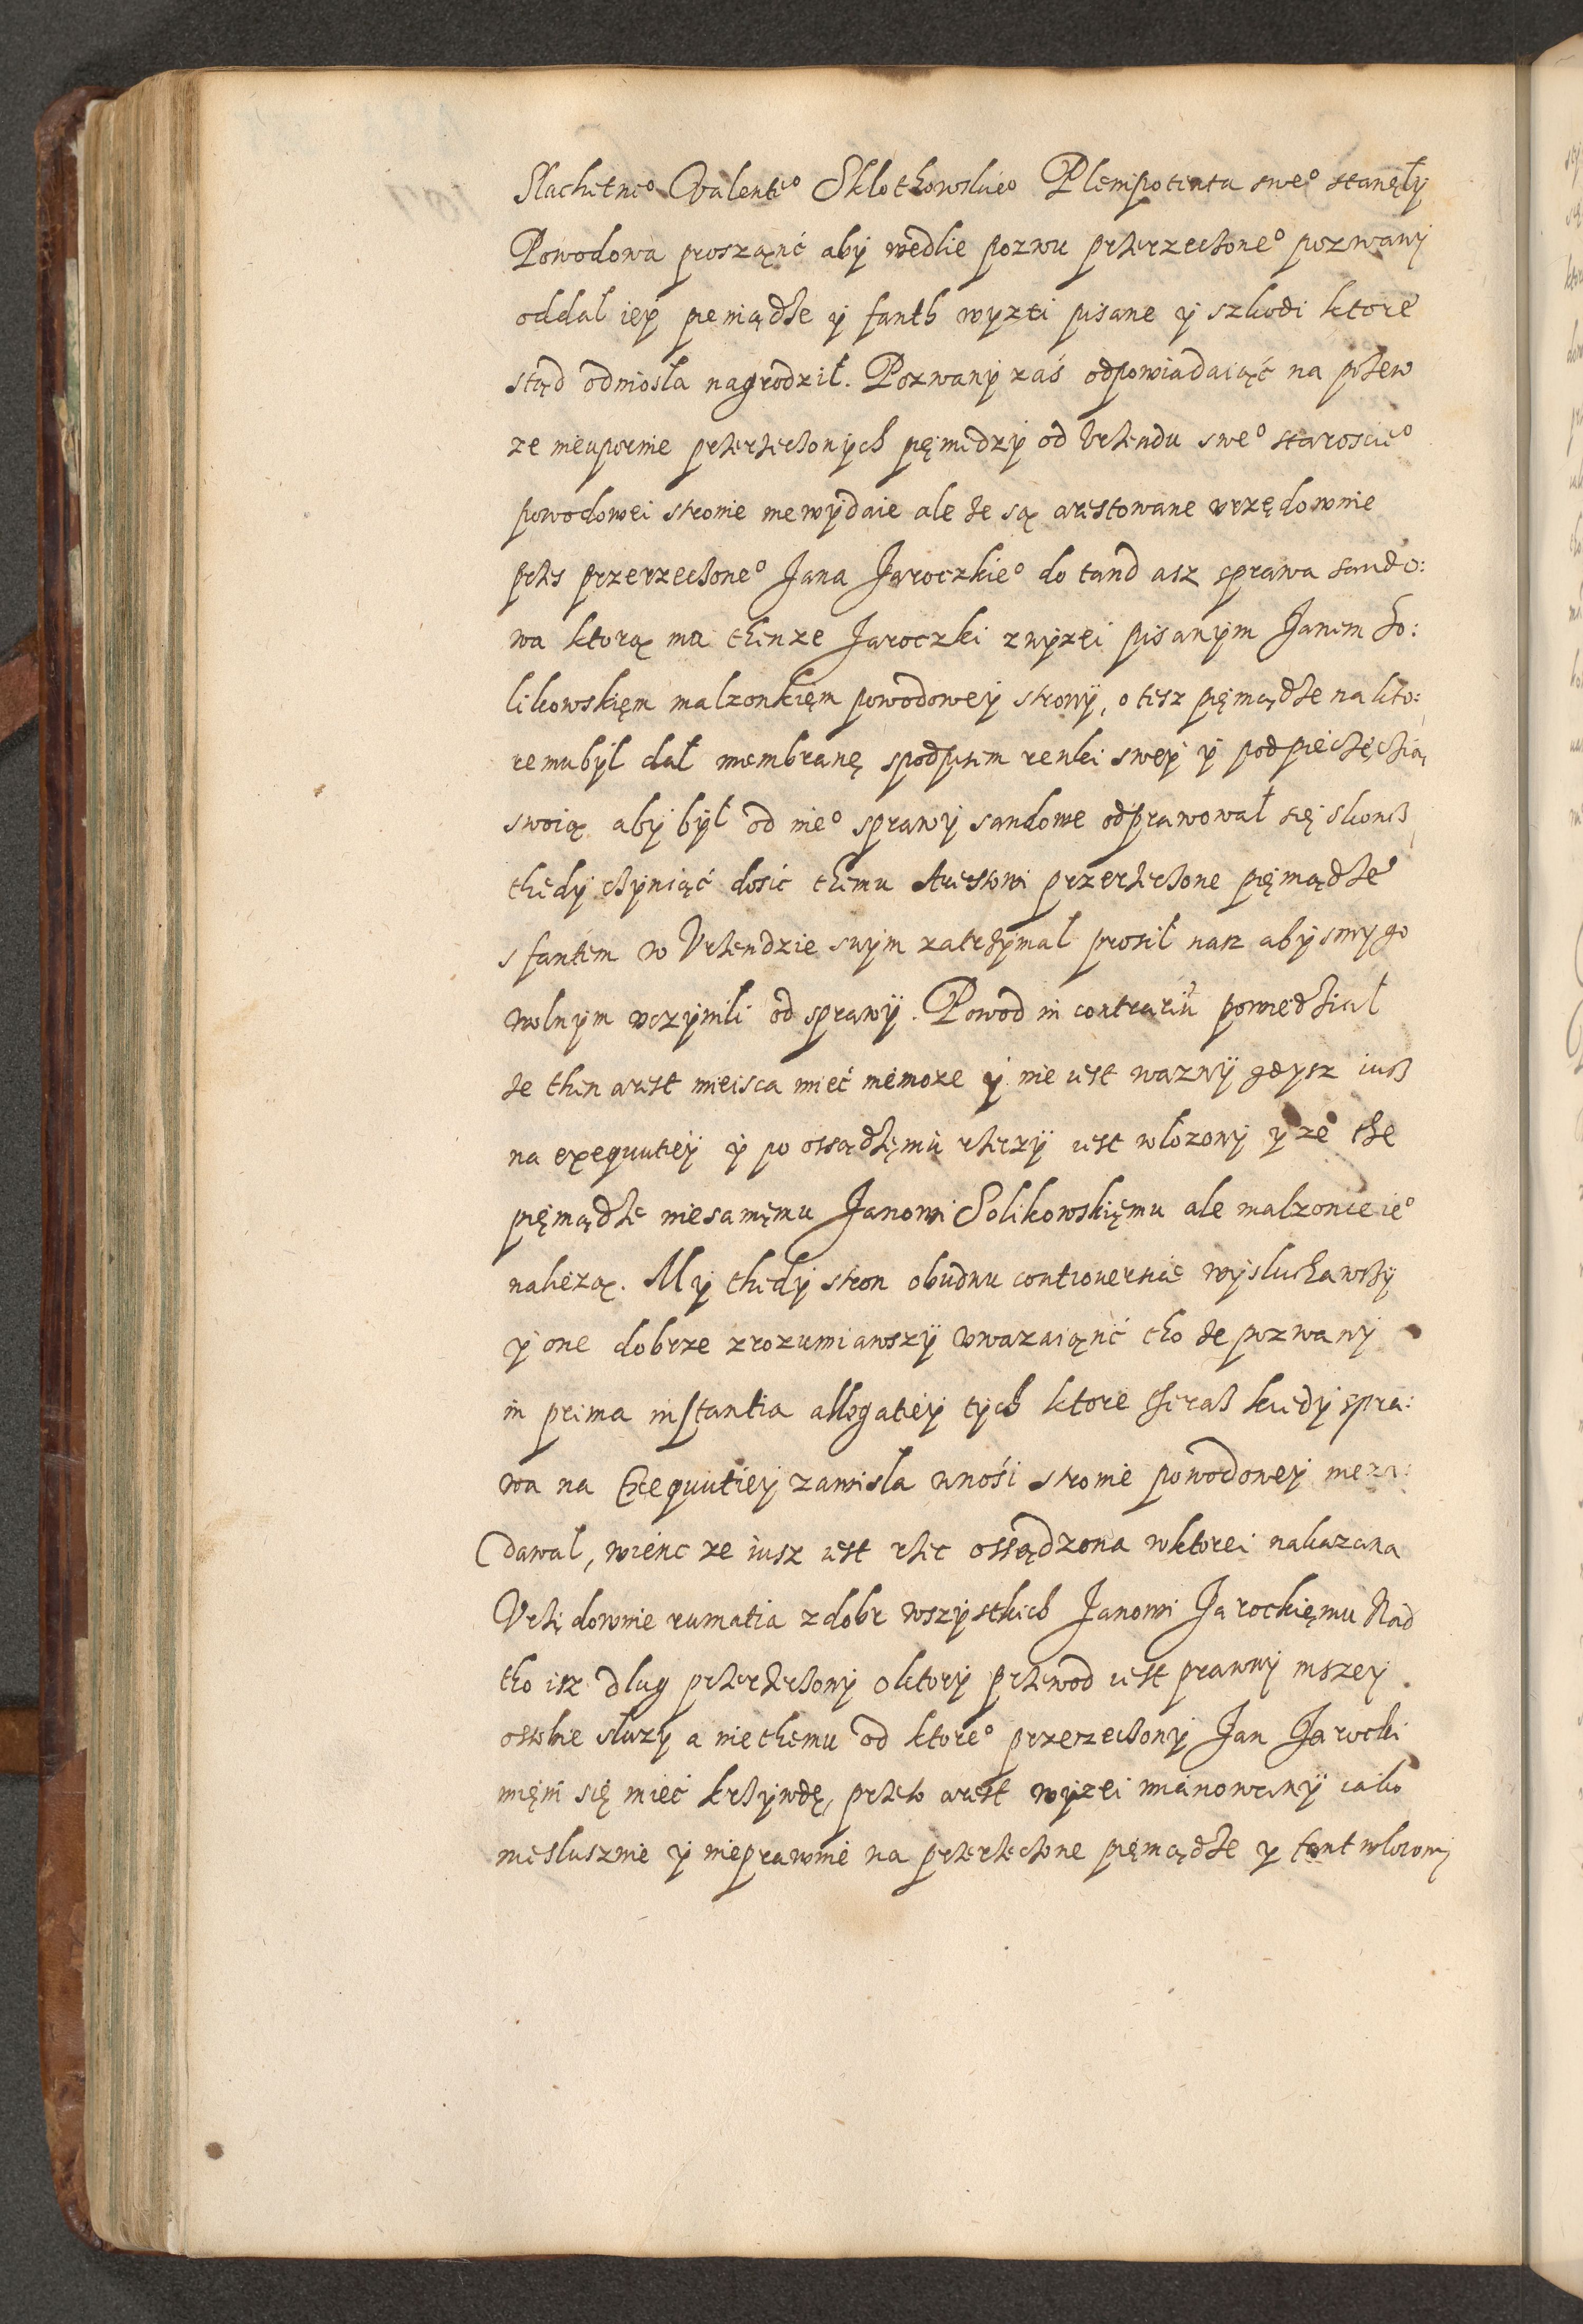 Slachetne° Walente° Sklothowskie° Plenipotenta swe° stanęły
Powodowa prosząnć aby wedlie pozwu przerzeczone° pozwany
oddał iey pieniądze y fanth wyzei pisane y szkodi ktore
stąd odniosła nagrodził. Pozwany zaś odpowiadaiąć na pozew
ze nieupornie przerzeczonych pięniedzy od Vrzendu swe° staroscie°
powodowei stronie niewydaie ale że są arestowane vrzędownie
przes przerzeczone° Jana Jaroczkie° do tand asz sprawa sando:
wa ktorą ma thenze Jaroczki zwyzei pisanym Janem So:
likowskięm malzonkięm powodowey strony, o tesz pięniądze na kto:
remu był dał membranę spodpisem renki swey y pod pieczęczią
swoią aby był od nie° sprawy sandowe odprawował się skonß
thedy czyniąć dosic themu Arestowi przerzeczone pięniądze
s fantem w Vrzendzie swym zatrzymal prosił nasz abysmy go
wolnym vczynili od sprawy. Powod in contrariu powiedział
że then arest mieisca mieć niemoze y nie iest wazny gdysz iusz
na exequutiey y po ossądzęniu rzeczy iest włozony y ze the
pięniądze niesamęmu Janowi Solikowskięmu ale malzonce ie°
nalieżą. My thedy stron obudwu controversie wysłuchawszy
y one dobrze zrozumiawszy vwazaiąnć tho że pozwany
in prima instantia allegatiey tych ktore theraß kiedy spra:
wa na Exequutiey zawisla wnośi stronie powodowey nieza:
dawal, wienc ze iusz iest rzec ossądzona wktorei nakazana
Vrzędownie rumatia z dobr wszystkich Janowi Jarockięmu Nad
tho isz dlug przerzeczony o ktory przewod iest prawny inszey
ossobie służy a nie themu od ktore° przerzeczony Jan Jarocki
mięni się mieć krzywdę, przeto arest wyzei mianowany iako
niesłusznie y nieprawnie na przerzeczone pięniądze y fant włozony